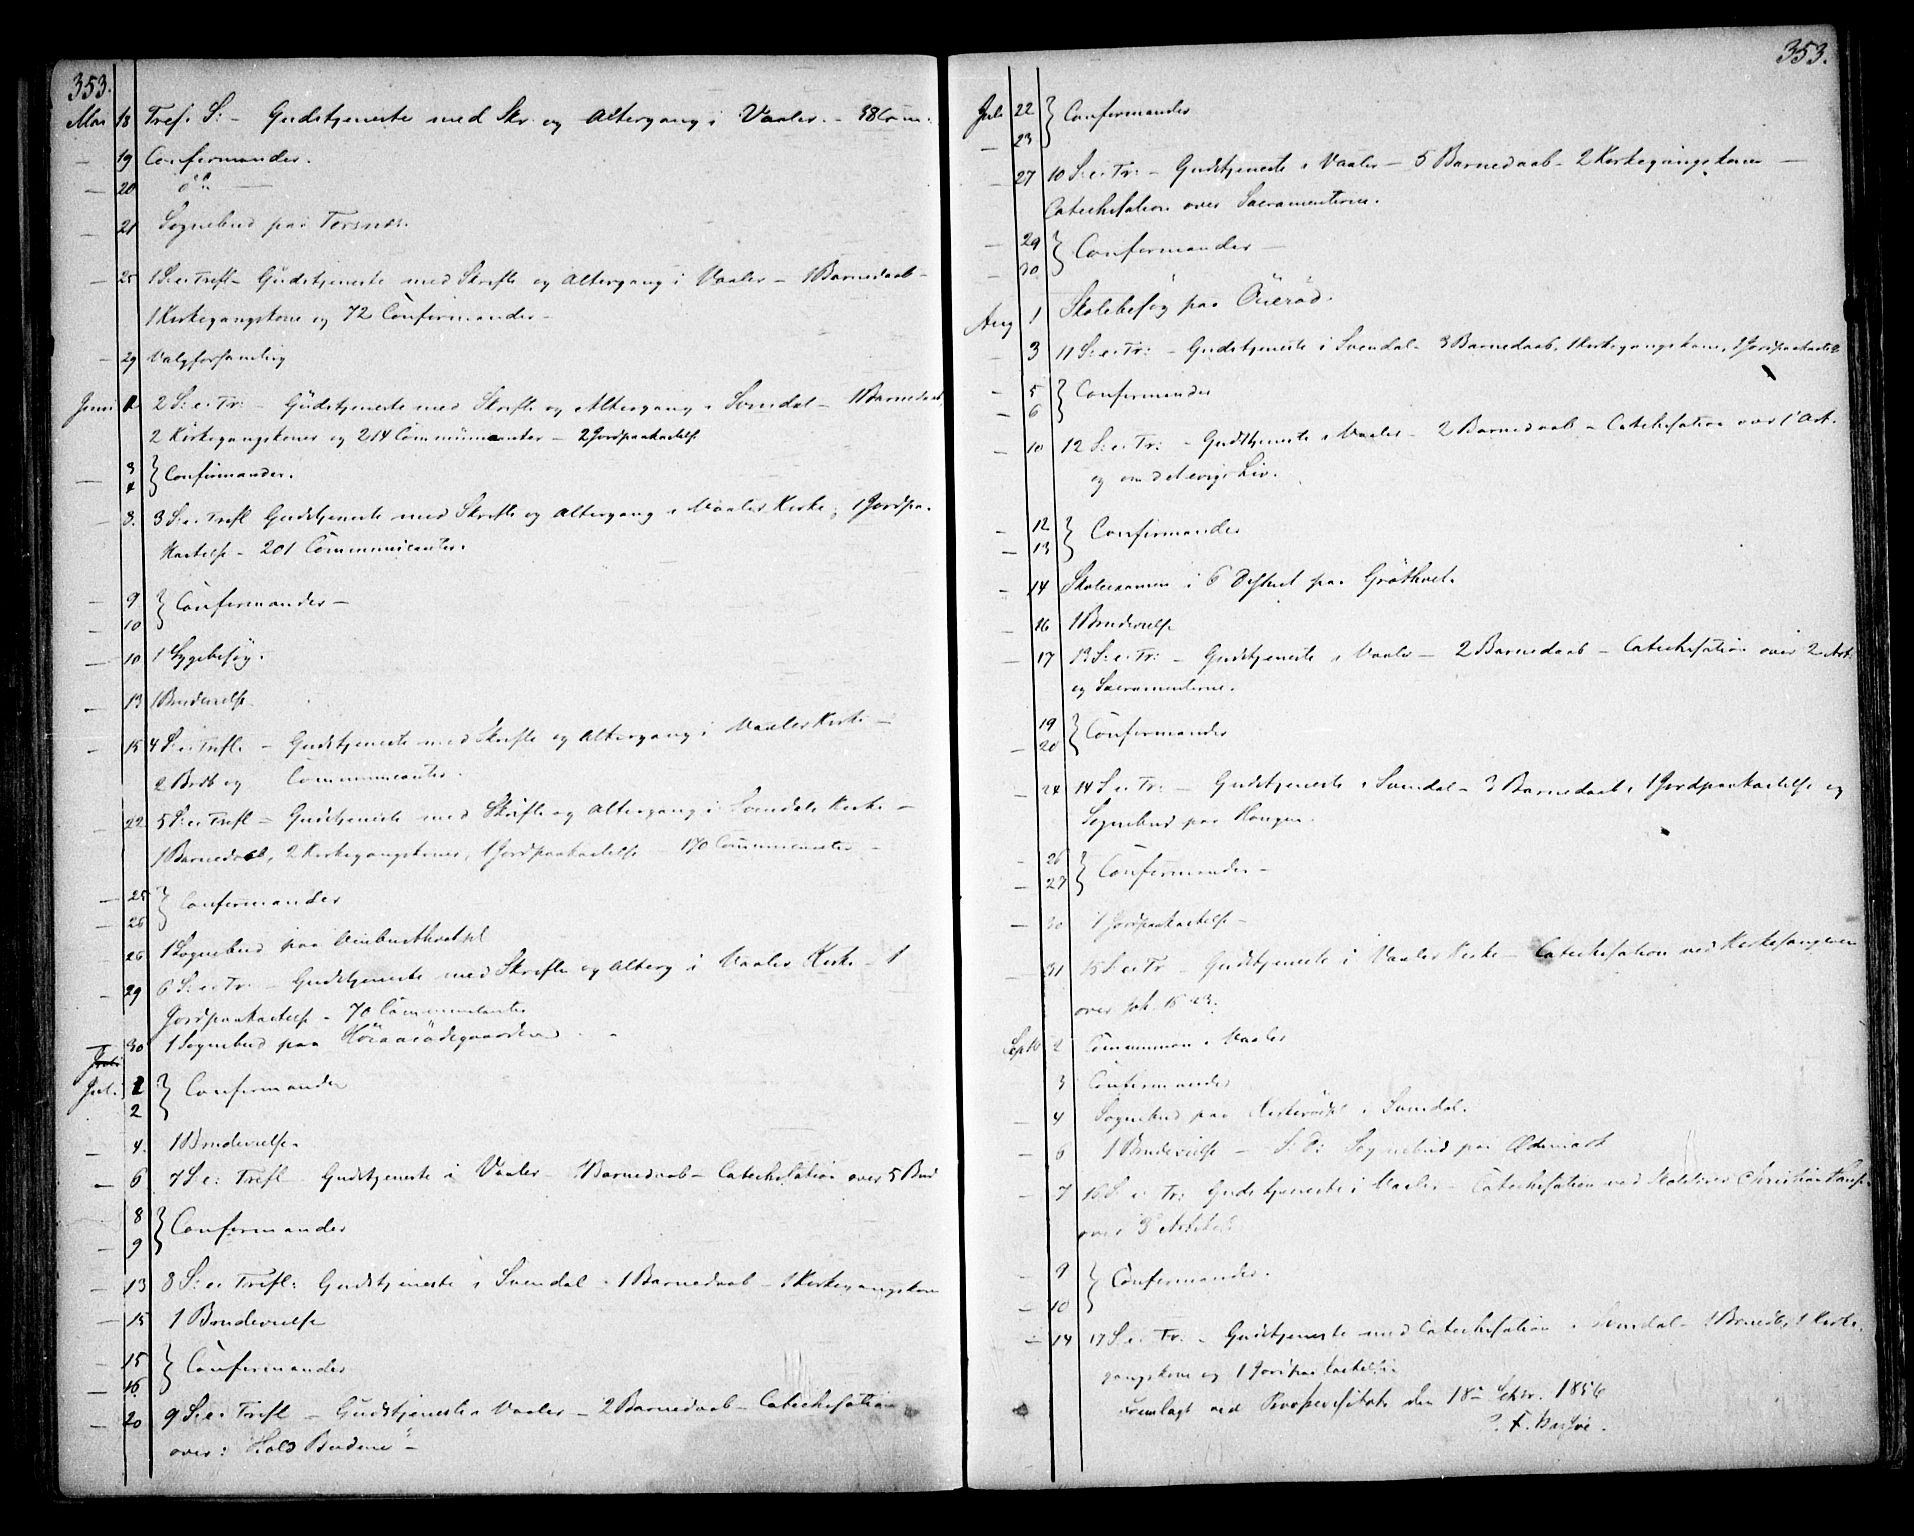 353.
Mai 18 Tref. S: – Gudstjeneste med Skr. og Altergang i Vaaler. – 38 Com.
– 19 Confirmander.
– 20 do –
– 21 Sognebud paa Torsnæs.
– 25 1 S: e: Trefl – Gudstjeneste med Skrifte og Altergang i Vaaler – 1 Barnedaab –
1 Kirkegangskone og 72 Confirmander –
– 29 Valgforsamling
Juni 1 2 S: e: Tr: – Gudstjeneste med Skrifte og Altergang i Svendal – 1 Barnedaab,
2 Kirkegangskoner og 214 Communicanter – 2 Jordpaakastelse
3
– 4 } Confirmander.
– 8. 3 S: e: Trefl Gudstjeneste med Skrifte og Altergang i Vaaler Kirke, 1 Jordpaa-
kastelse – 201 Communicanter.
– 9
– 10 } Confirmander –
– 10 1 Sygebesøg.
– 13 1 Brudevielse.
– 15 4 S: e: Trefl. – Gudstjeneste med Skrifte og Altergang i Vaaler Kirke –
2 Brdb og Communicanter.
– 22 5 S: e: Trefl – Gudstjeneste med Skrifte og Altergang i Svendals Kirke –
1 Barnedaab, 2 Kirkegangskoner, 1 Jordpaakastelse – 170 Communicanter –
– 25
– 26 } Confirmander
26 1 Sognebud paa
– 29 6 S: e: Tr: – Gudstjeneste med Skrifte og Alterg i Vaaler Kirke – 1
Jordpaakastelse – 70 Communicanter
– 30 1 Sognebud paa
Juli 1
2 } Confirmander
– 4. 1 Brudevielse.
– 6 7 S e: Trefl Gudstjeneste i Vaaler – 1 Barnedaab – Catechisation over 5 Bud
8
– 9 } Confirmander
– 13 8 S: e: Trefl: Gudstjeneste i Svendal – 1 Barnedaab – 1 Kirkegangskone
– 15 1 Brudevielse
– 15
– 16 } Confirmander
– 20 9 S: e: Trefl – Gudstjeneste i Vaaler – 2 Barnedaab – Catechisation
over: "Hold Budene" –
353.
Juli 22
– 23 } Confirmander
– 27 10 S: e: Tr: – Gudstjeneste i Vaaler – 5 Barnedaab – 2 Kirkegangskoner –
Catechisation over Sacramenterne.
– 29
– 30 } Confirmander –
Aug 1 Skolebesøg paa
– 3 11 S: e: Tr: – Gudstjeneste i Svendal – 3 Barnedaab, 1 Kirkegangskone, 1 Jordpaakastelse
– 5
– 6 } Confirmander
– 10 12 S: e: Tr: – Gudstjeneste i Vaaler – 2 Barnedaab – Catechisation over 1 Art.
og om det evige Liv.
– 12
– 13 } Confirmander
– 14 Skoleexamen i 6 Distrct paa Gröthvet.
– 16 1 Brudevielse
– 17 13 S: e: Tr: – Gudstjeneste i Vaaler – 2 Barnedaab – Catechisation over 2 Art:
og Sacramenterne.
19
– 20 } Confirmander
– 24 14 S e: Tr: – Gudstjeneste i Svendal – 3 Barnedaab, 1 Jordpaakastelse og
Sognebud paa Haugen.
– 26
– 27 } Confirmander –
– 30 1 Jordpaakastelse –
– 31 15 S: e: Tr – Gudstjeneste i Vaaler Kirke – Catechisation ved Kirkesangeren
over
Septb 2 Communion i Vaaler
3 Confirmander
– 4 Sognebud paa Kirkerödsl i Svendal.
– 6 1 Brudevielse – S: D: Sognebud paa Ödemark
– 7 16 S. e: Tr: Gudstjeneste i Vaaler – Catechisation ved Skolelærer Christian
over 3 Artikel
– 9
– 10 } Confirmander.
– 14 17 S. e: Tr: – Gudstjeneste med Catechisation i Svendal – 1 Brnedb, 1 Kirke-
gangskone og 1 Jordpaakastelse
Fremlagt ved Provstevisitats den 18de Septbr. 1856